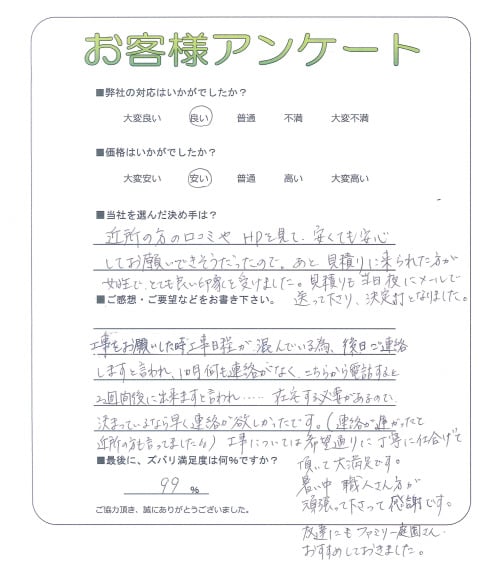 お客様アンケート
■弊社の対応はいかがでしたか？
大変良い 良い 普通 不満 大変不満
■価格はいかがでしたか？
大変安い 安い 普通 高い 大変高い
■当社を選んだ決め手は？
近所の方の口コミや HPを見て、安くても安心
してお願いできそうだったので。あと 見積りに来られた方が
女性で、とても良い印象を受けました。見積りも当日夜にメールで
送って下さり、決定打となりました。
■ご感想・ご要望などをお書き下さい。
工事をお願いした時 工事日程が 混んでいる為、後日ご連絡
しますと言われ、1ヶ月何も連絡がなく、こちらから電話すると
2週間後に出来ますと言われ…… 在宅する必要があるので、
決まっているなら早く連絡が欲しかったです。（連絡が遅かったと
近所の方も言ってました） 工事については希望通りに丁寧に仕上げて
頂いて大満足です。
暑い中 職人さん方が
頑張って下さって感謝です。
友達にもファミリー庭園さん
おすすめしておきました。
■最後に、ズバリ満足度は何％ですか？
99 %
ご協力頂き、誠にありがとうございました。